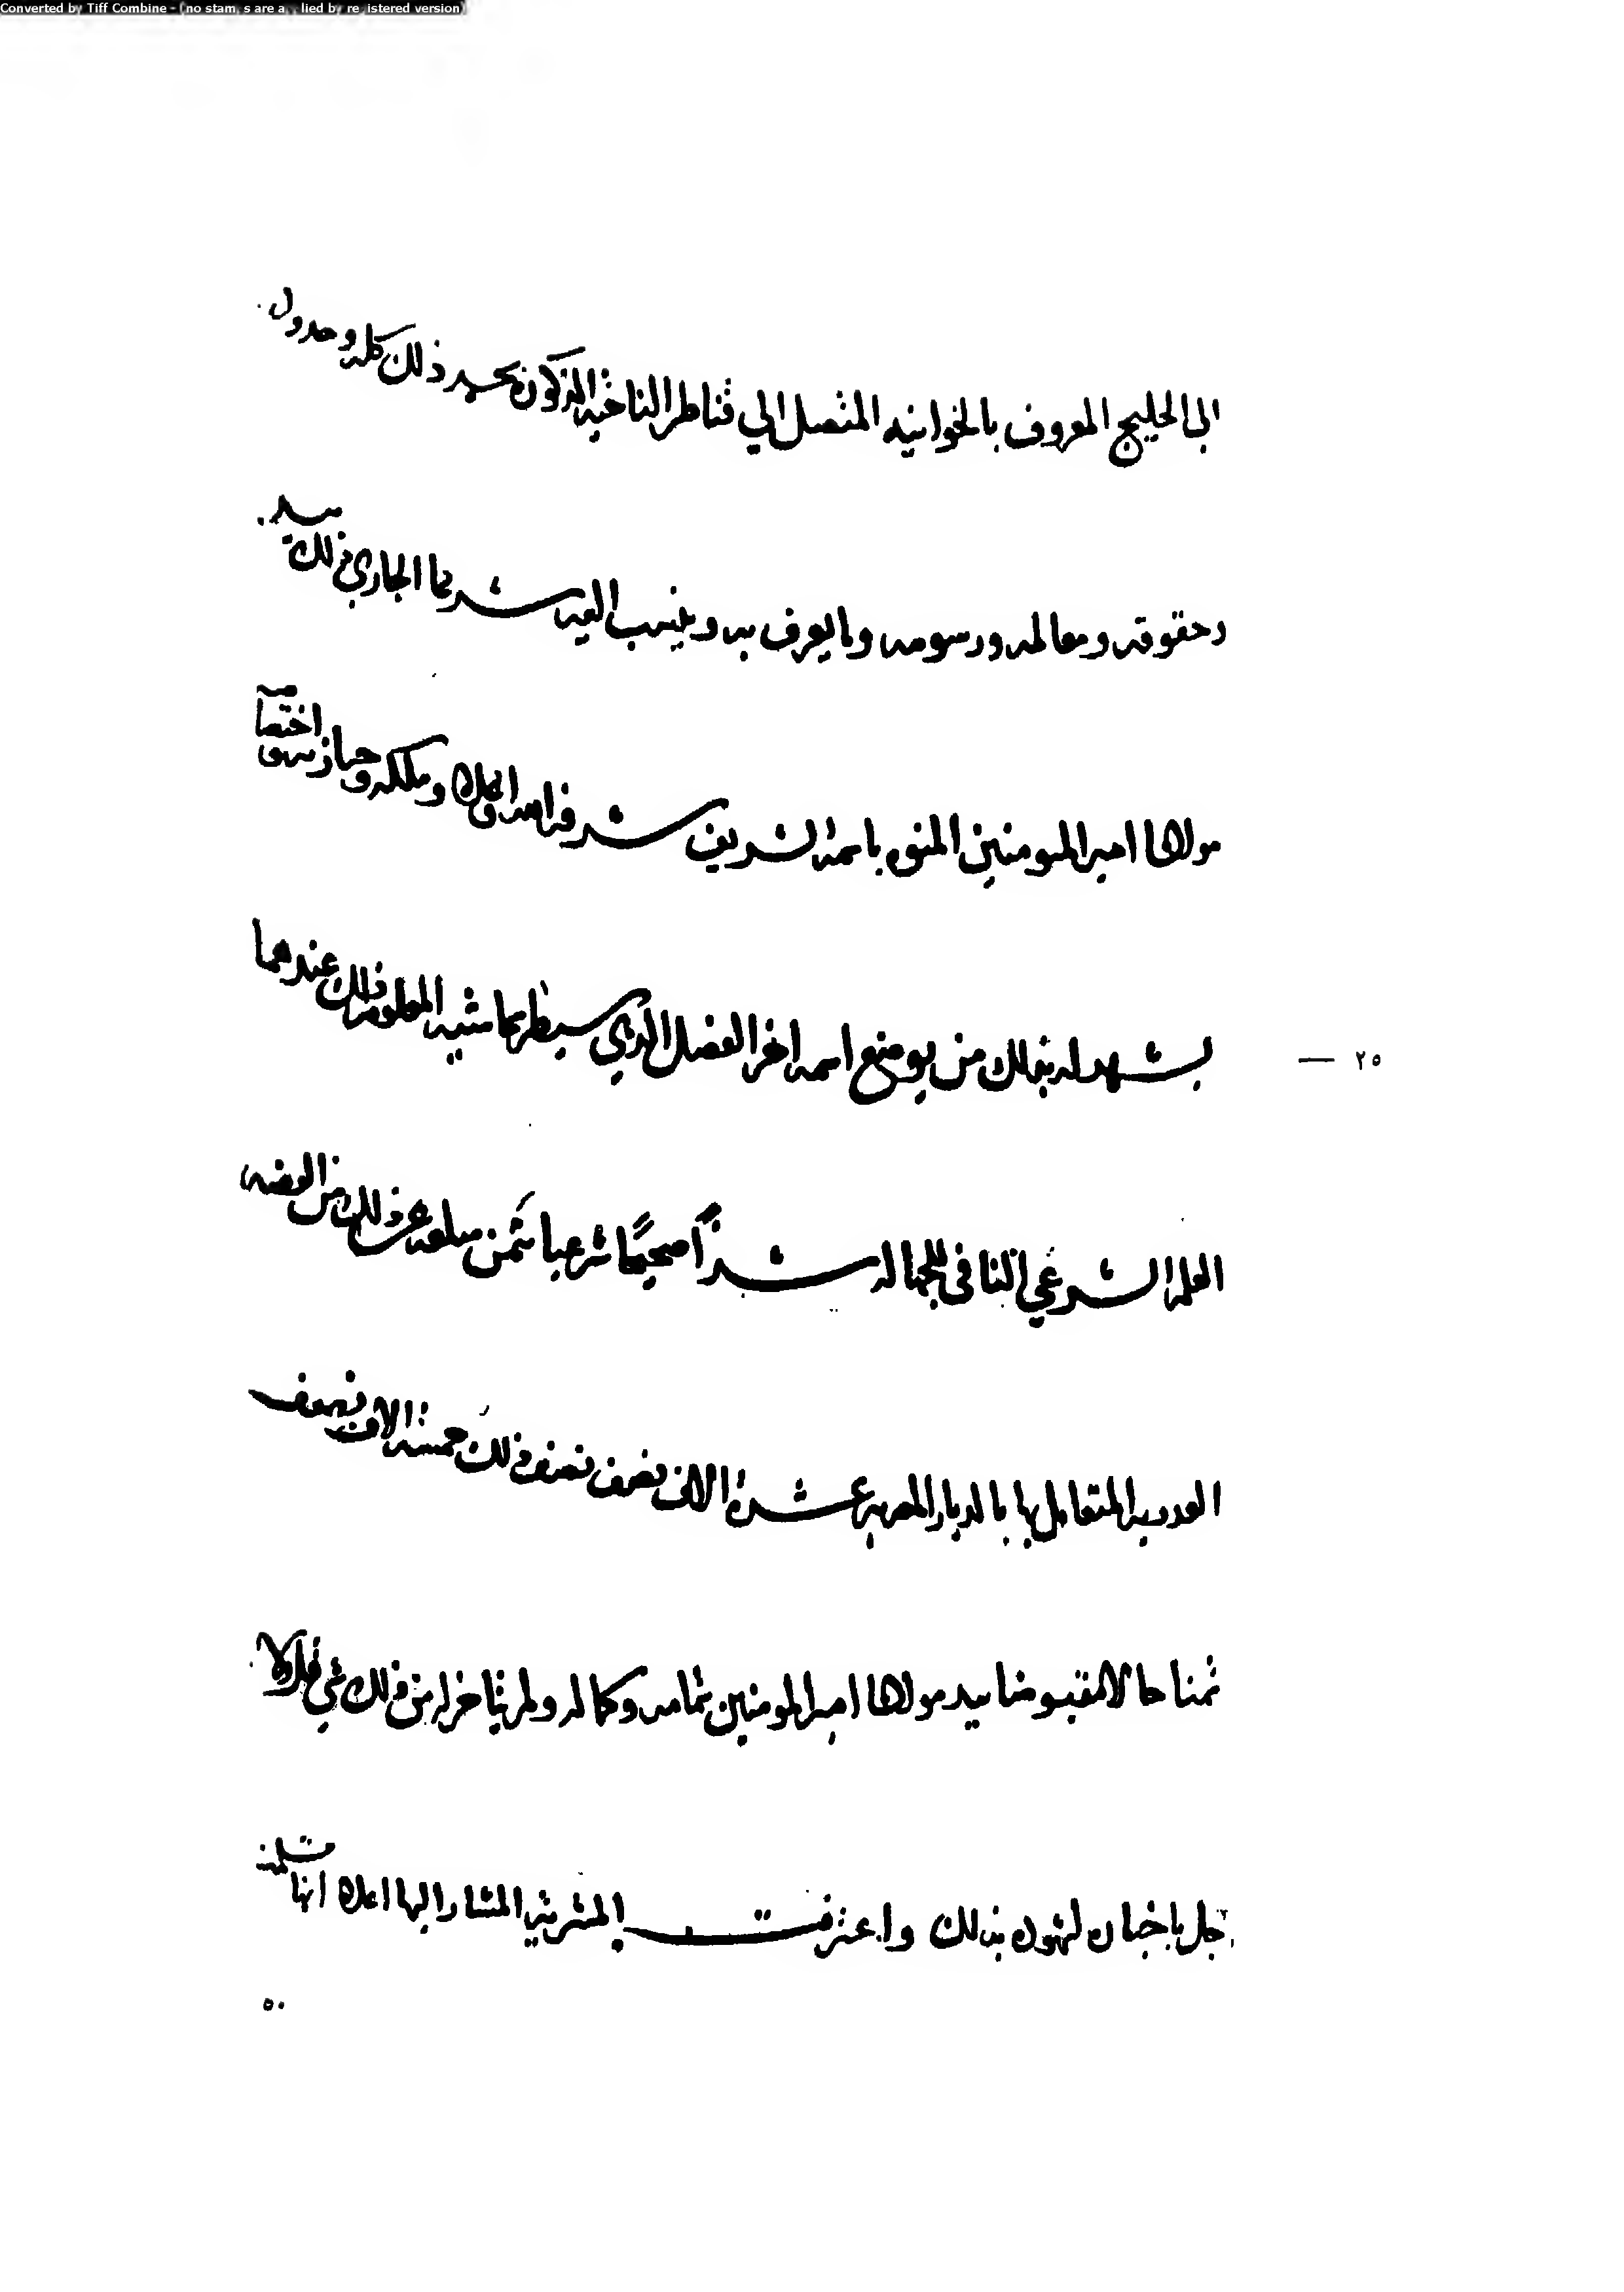 Converted by Tiff Combine - (no stamps are applied by registered version)
الى الخليج المعروف بالخوانيه المتصل الي قناطر الناحيه المذكوره بحد ذلك كله وحدوده
وحقوقه ومعالمه ورسومه وما يعرف به وينسب اليه شرعا الجاري ذلك بيد
مولانا امير المومنين المنوه باسمه الشريف شرفه الله واعلاه وملكه وحيازته واختصاصه
يشهد له بذلك من يوضع اسمه اخر الفصل الذي سيسطر بهامشيه المعلوم ذلك عندهما
٢٥ —
العلم الشرعي النافي للجهاله شراً صحيحًا شرعيا بثمن مبلغه عن ذلك من الفضه
العدديه المتعامل بها بالديار المصريه عشرة الاف نصف نصف ذلك خمسة الاف نصف
ثمنا حالا مقبوضا بيد مولانا امير المومنين بتمامه وكماله ولم يتاخر له من ذلك شي قل ولا
جل باخبار شهوده بذلك واعترفت المشتريه المشار اليها اعلاه انها
٥٠